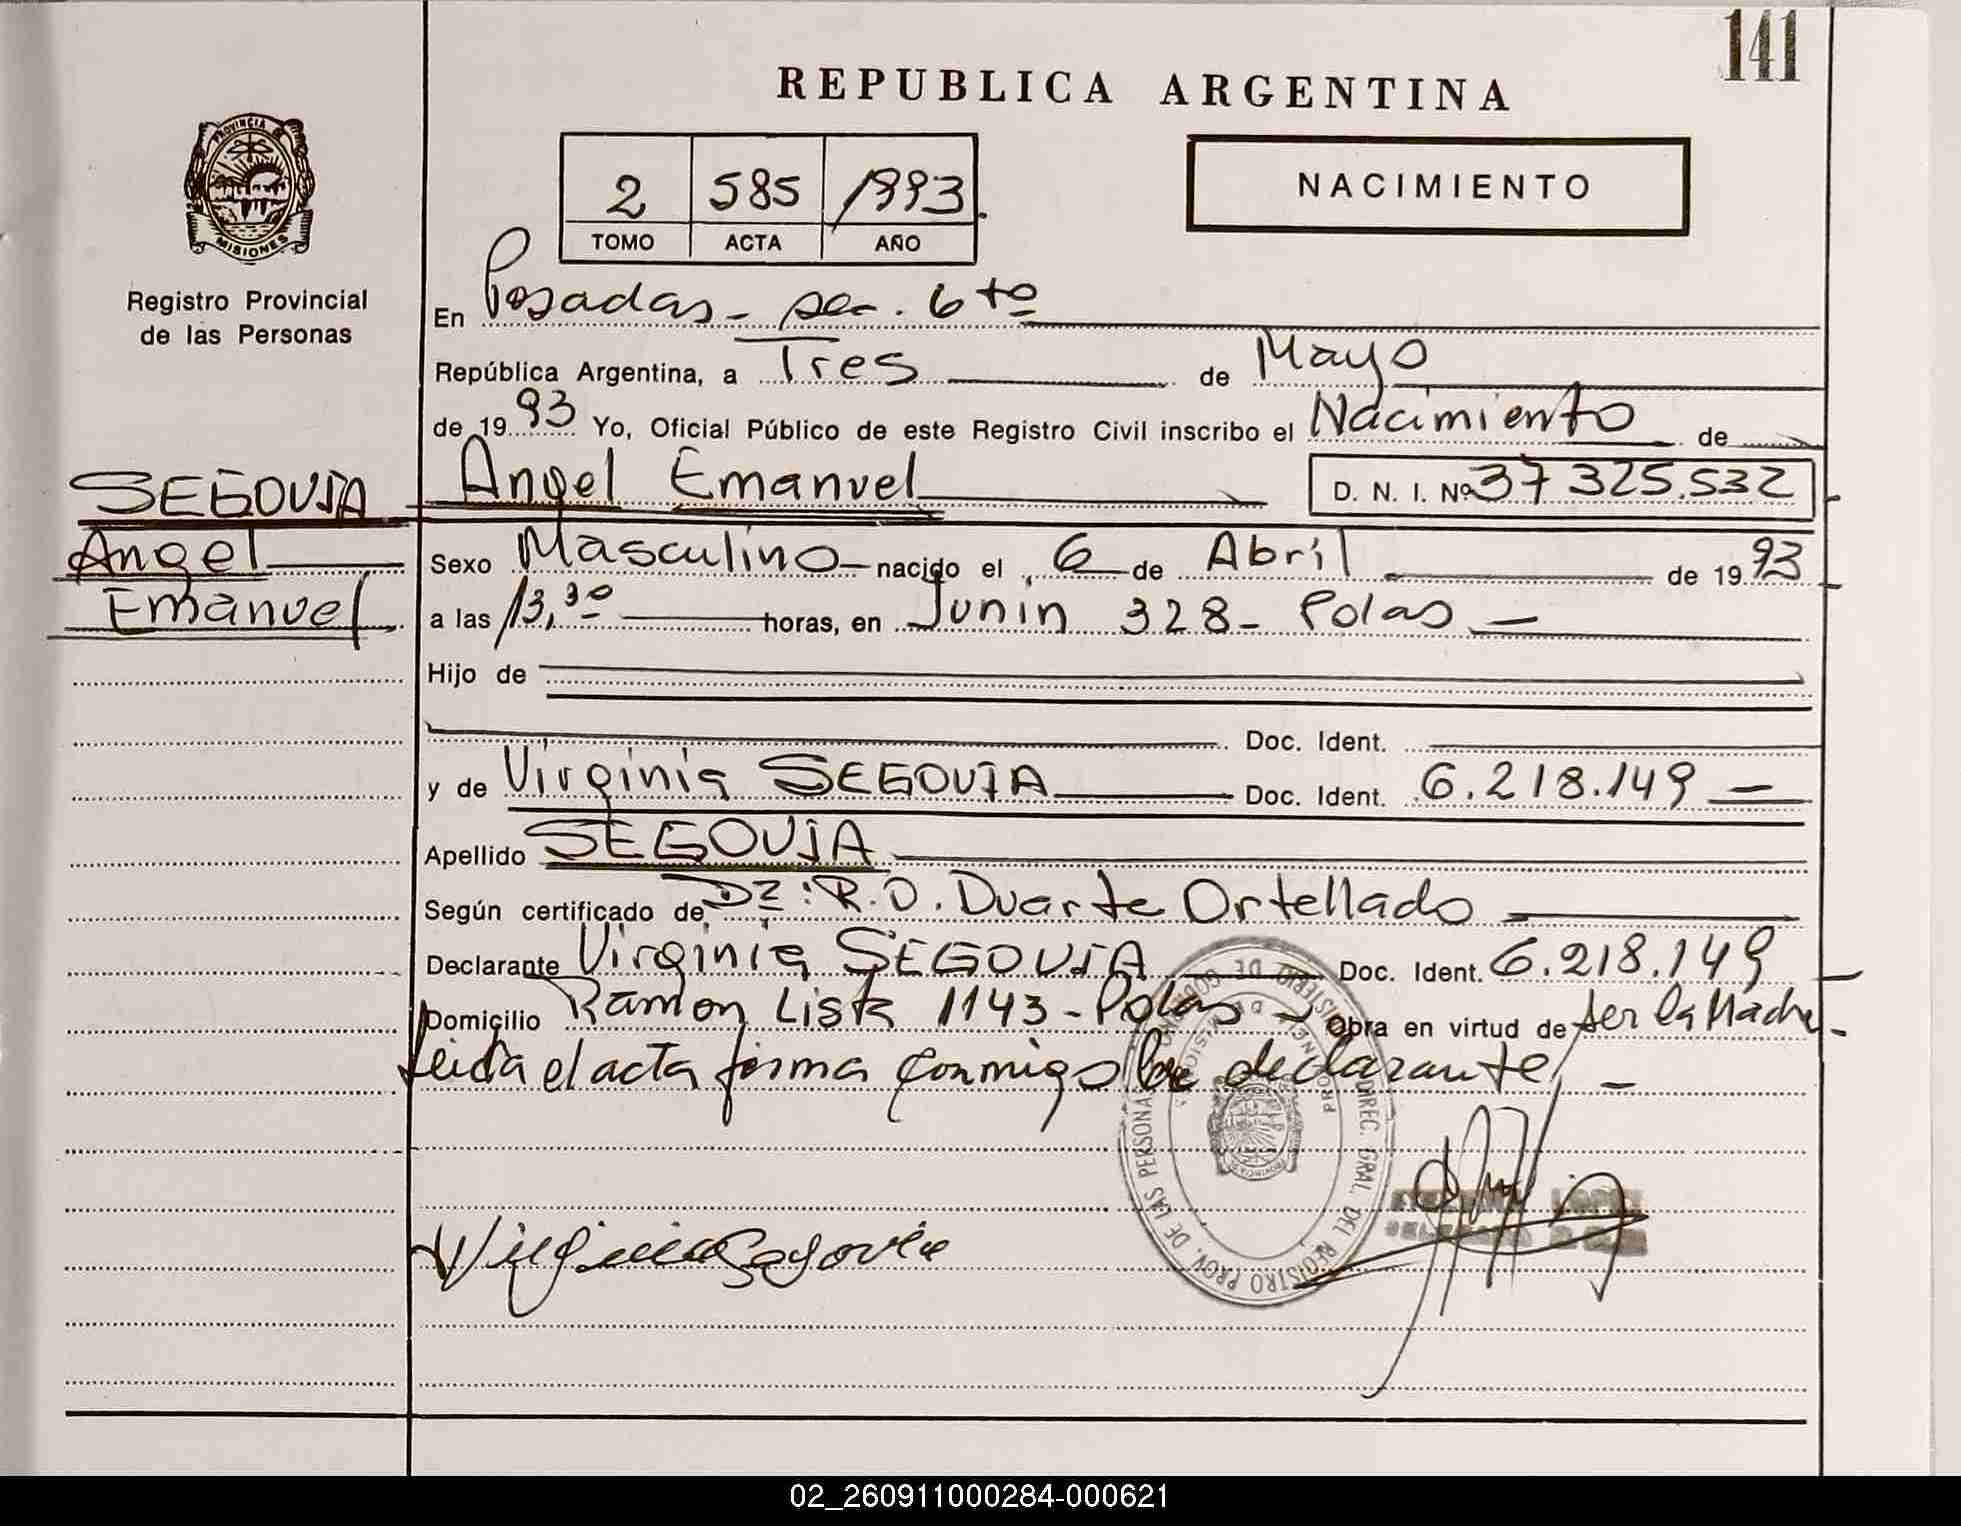 141
REPUBLICA ARGENTINA
PROVINCIA DE
MISIONES
2 585 1993.
TOMO ACTA AÑO
NACIMIENTO
Registro Provincial
de las Personas
En Posadas - sec. 6to
República Argentina, a Tres de Mayo
de 1993 Yo, Oficial Público de este Registro Civil inscribo el Nacimiento de
SEGOVIA
Angel
Emanuel
Angel Emanuel D. N. I. Nº 37 325.532
Sexo Masculino nacido el 6 de Abril de 1993
a las 13,30 horas, en Junin 328 - Posas
Hijo de
Doc. Ident.
y de Virginia SEGOVIA Doc. Ident. 6.218.149
Apellido SEGOVIA
Según certificado de Dr: R.O. Duarte Ortellado
Declarante Virginia SEGOVIA Doc. Ident. 6.218.149
Domicilio Ramon Lista 1143 - Posas Obra en virtud de ser la Madre
leida el acta firma conmigo la declarante
DIREC. GRAL. DEL REGISTRO PROV. DE LAS PERSONAS
Virginia Segovia
02_260911000284-000621